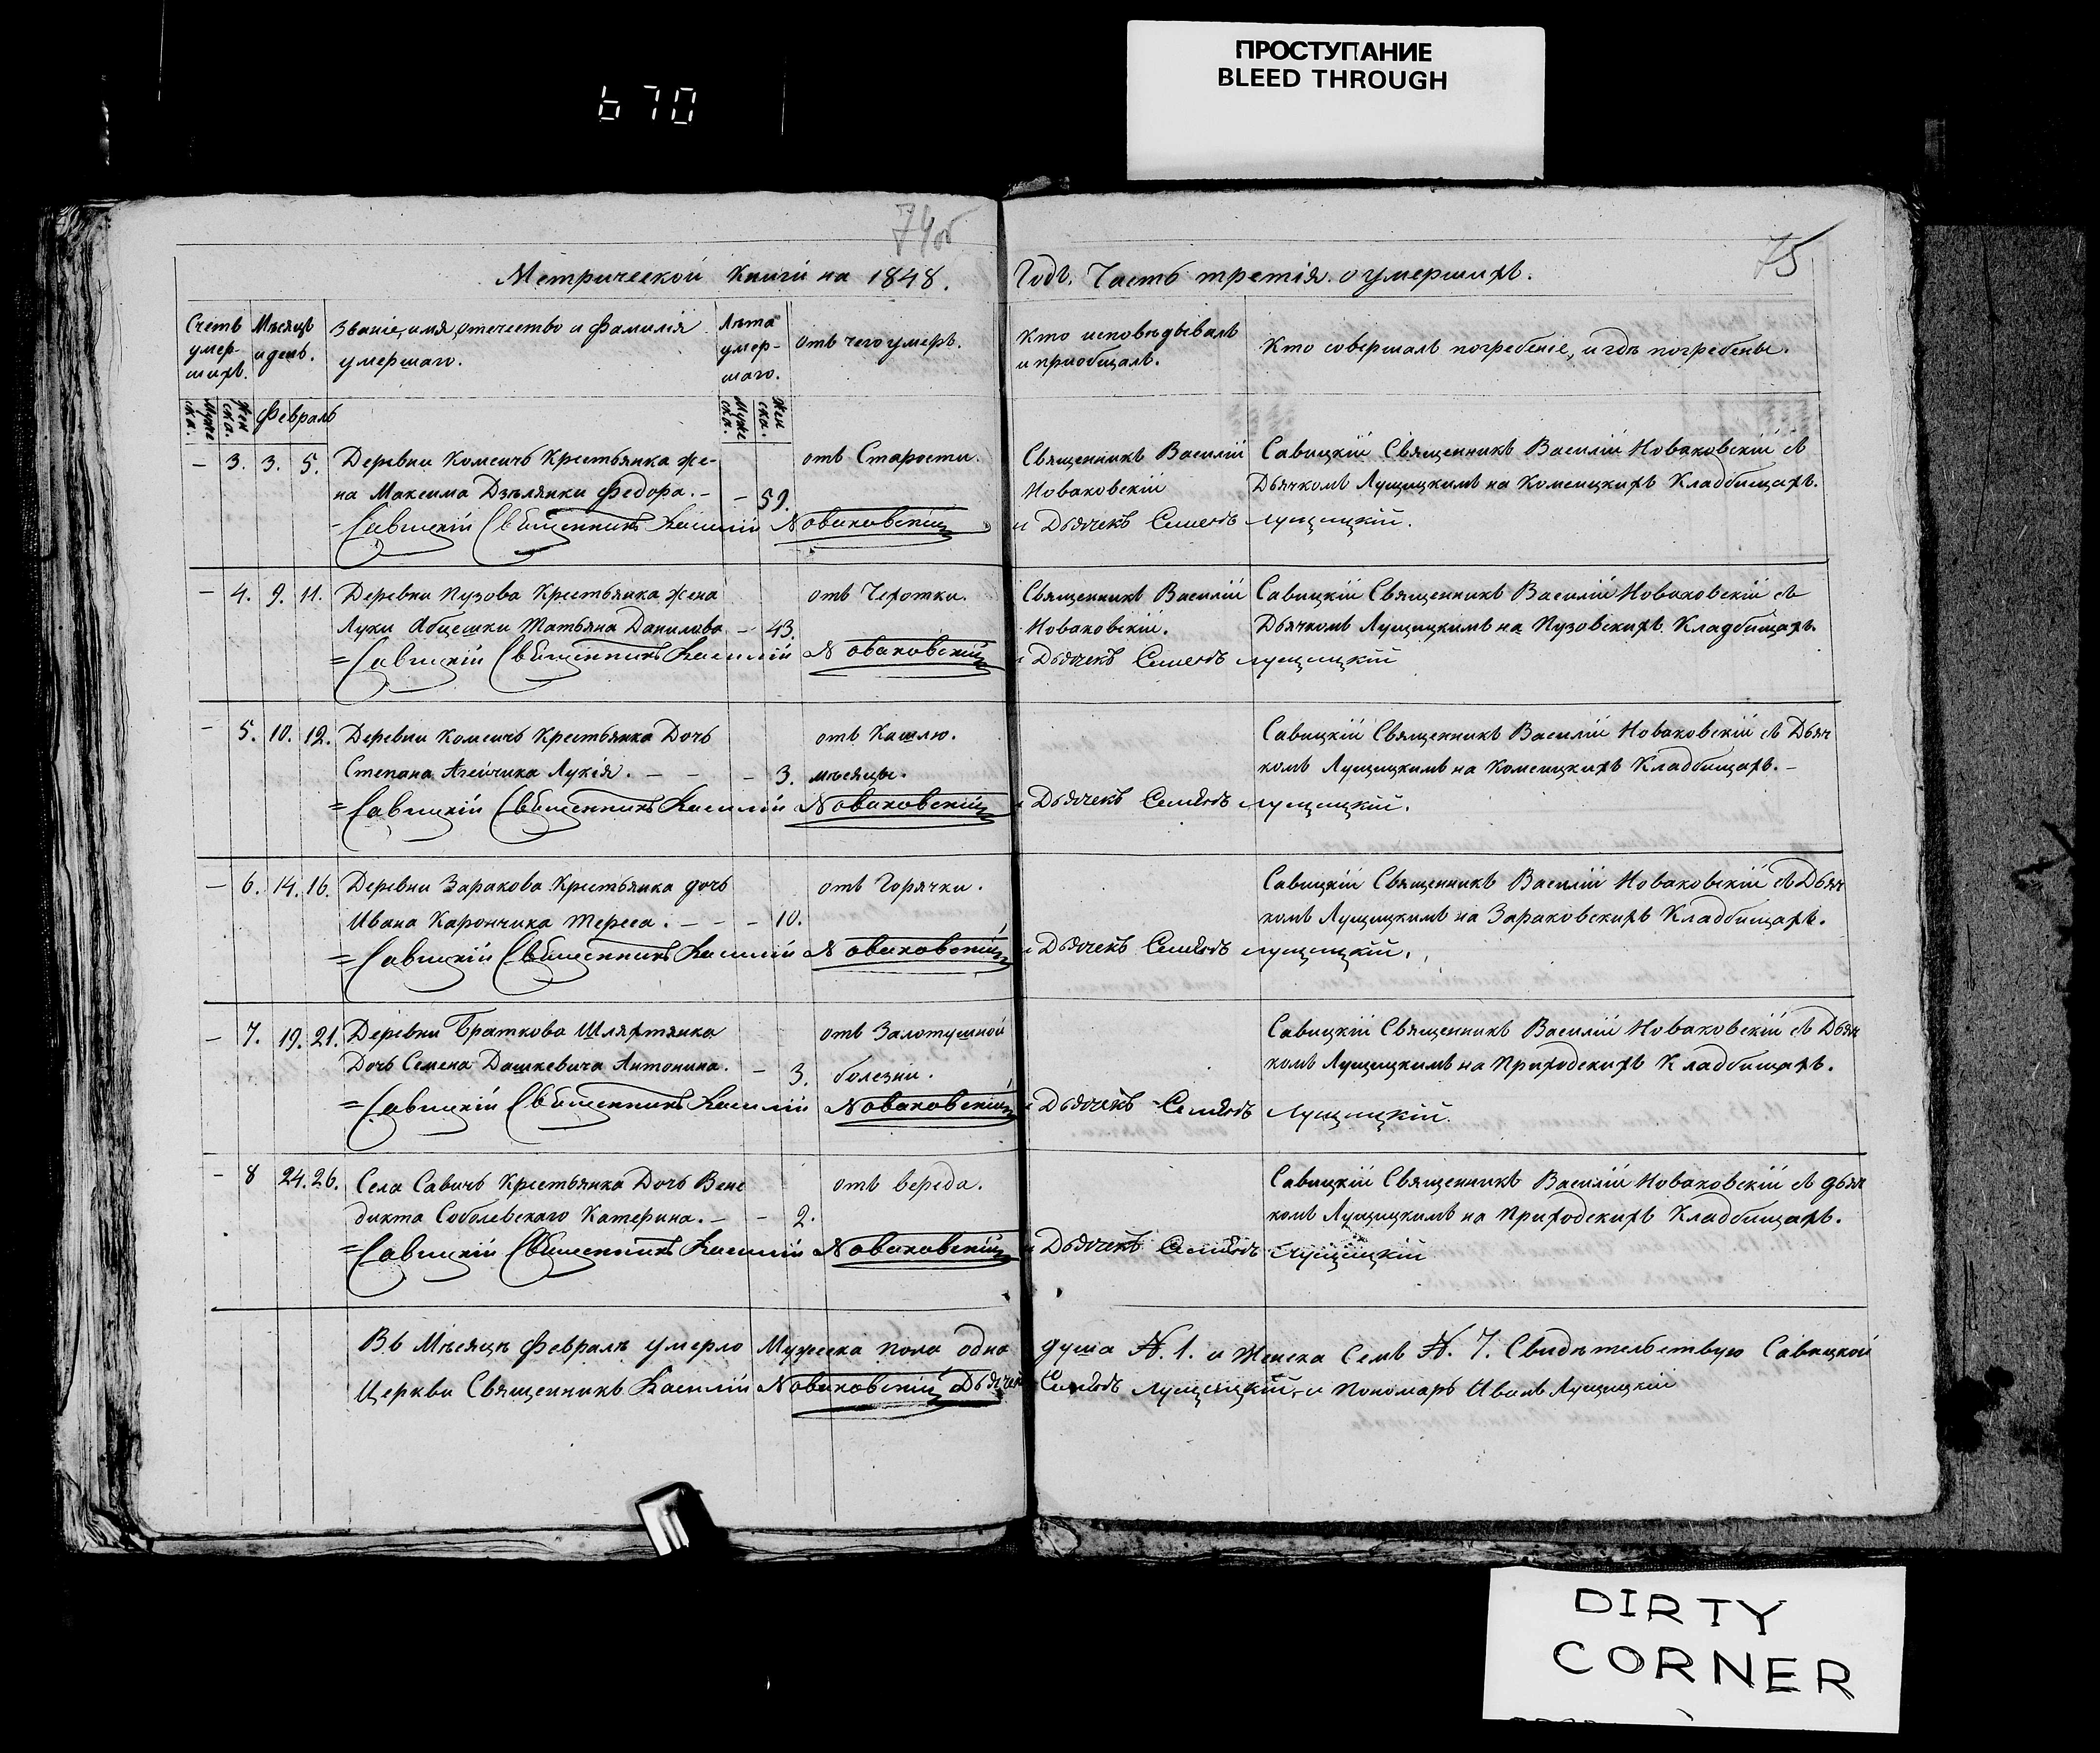 ПРОСТУПАНИЕ
BLEED THROUGH
670
74об
75
Метрической Книги на 1848.
Годъ. Часть третія. о умершихъ.
Счетъ умер- шихъ.
Мѣсяцъ и день.
Званіе, имя, отечество и Фамилія
умершаго.
Лѣта умер- шаго.
отъ чего умеръ.
Кто исповѣдывалъ
и приобщалъ.
Кто совершалъ погребеніе, и гдѣ погребены.
Муже ска.
Жен ска.
Февраль
Муже ска.
Жен ска.
– 3. 3. 5. Деревни Комсичъ Крестьянка же- отъ Старости. Священникъ Василій Савицкій Священникъ Василій Новаковскій съ
на Максима Дзѣлянки Федора. – – 59. Новаковскій Дьячкомъ Лущицкимъ на Комсицкихъ Кладбищахъ.
– Савицкій Священникъ Василій Новаковскій и Дьячекъ Семеонъ Лущицкій.
– 4. 9. 11. Деревни Пузова Крестьянка жена отъ Чехотки. Священникъ Василій Савицкій Священникъ Василій Новаковскій съ
Луки Абцешки Татьяна Данилова – 43. Новаковскій. Дьячкомъ Лущицкимъ на Пузовскихъ Кладбищахъ.
= Савицкій Священникъ Василій Новаковскій и Дьячекъ Семеонъ Лущицкій
– 5. 10. 12. Деревни Комсичъ Крестьянка Дочь отъ Кашлю. Савицкій Священникъ Василій Новаковскій съ Дьяч
Степана Агейчика Лукія. – – – 3. мѣсяцы. комъ Лущицкимъ на Комсицкихъ Кладбищахъ. –
= Савицкій Священникъ Василій Новаковскій и Дьячекъ Семеонъ Лущицкій.
– 6. 14. 16. Деревни Заракова Крестьянка дочь отъ Горячки. Савицкій Священникъ Василій Новаковскій съ Дьяч
Ивана Карончика Тереса. – – – 10. комъ Лущицкимъ на Зараковскихъ Кладбищахъ.
= Савицкій Священникъ Василій Новаковскій и Дьячекъ Семеонъ Лущицкій.
– 7. 19. 21. Деревни Браткова Шляхтянка отъ Залотушной Савицкій Священникъ Василій Новаковскій съ Дьяч
Дочь Семена Дашкевича Антонина. – 3. болезни. комъ Лущицкимъ на Приходскихъ Кладбищахъ.
= Савицкій Священникъ Василій Новаковскій и Дьячекъ Семеонъ Лущицкій.
– 8 24. 26. Села Савичъ Крестьянка Дочь Вене отъ вереда. Савицкій Священникъ Василій Новаковскій съ дьяч
дикта Соболевскаго Катерина. – – 2. комъ Лущицкимъ на Приходскихъ Кладбищахъ.
= Савицкій Священникъ Василій Новаковскій и Дьячекъ Семеонъ Лущицкій
Въ Мѣсяцѣ Февралѣ умерло Мужеска пола одна душа N. 1. и Женска Семь N. 7. Свидѣтельствую Савицкой
Церкви Священникъ Василій Новаковскій Дьячекъ Семеонъ Лущицкій, и Пономарь Иванъ Лущицкій
DIRTY
CORNER